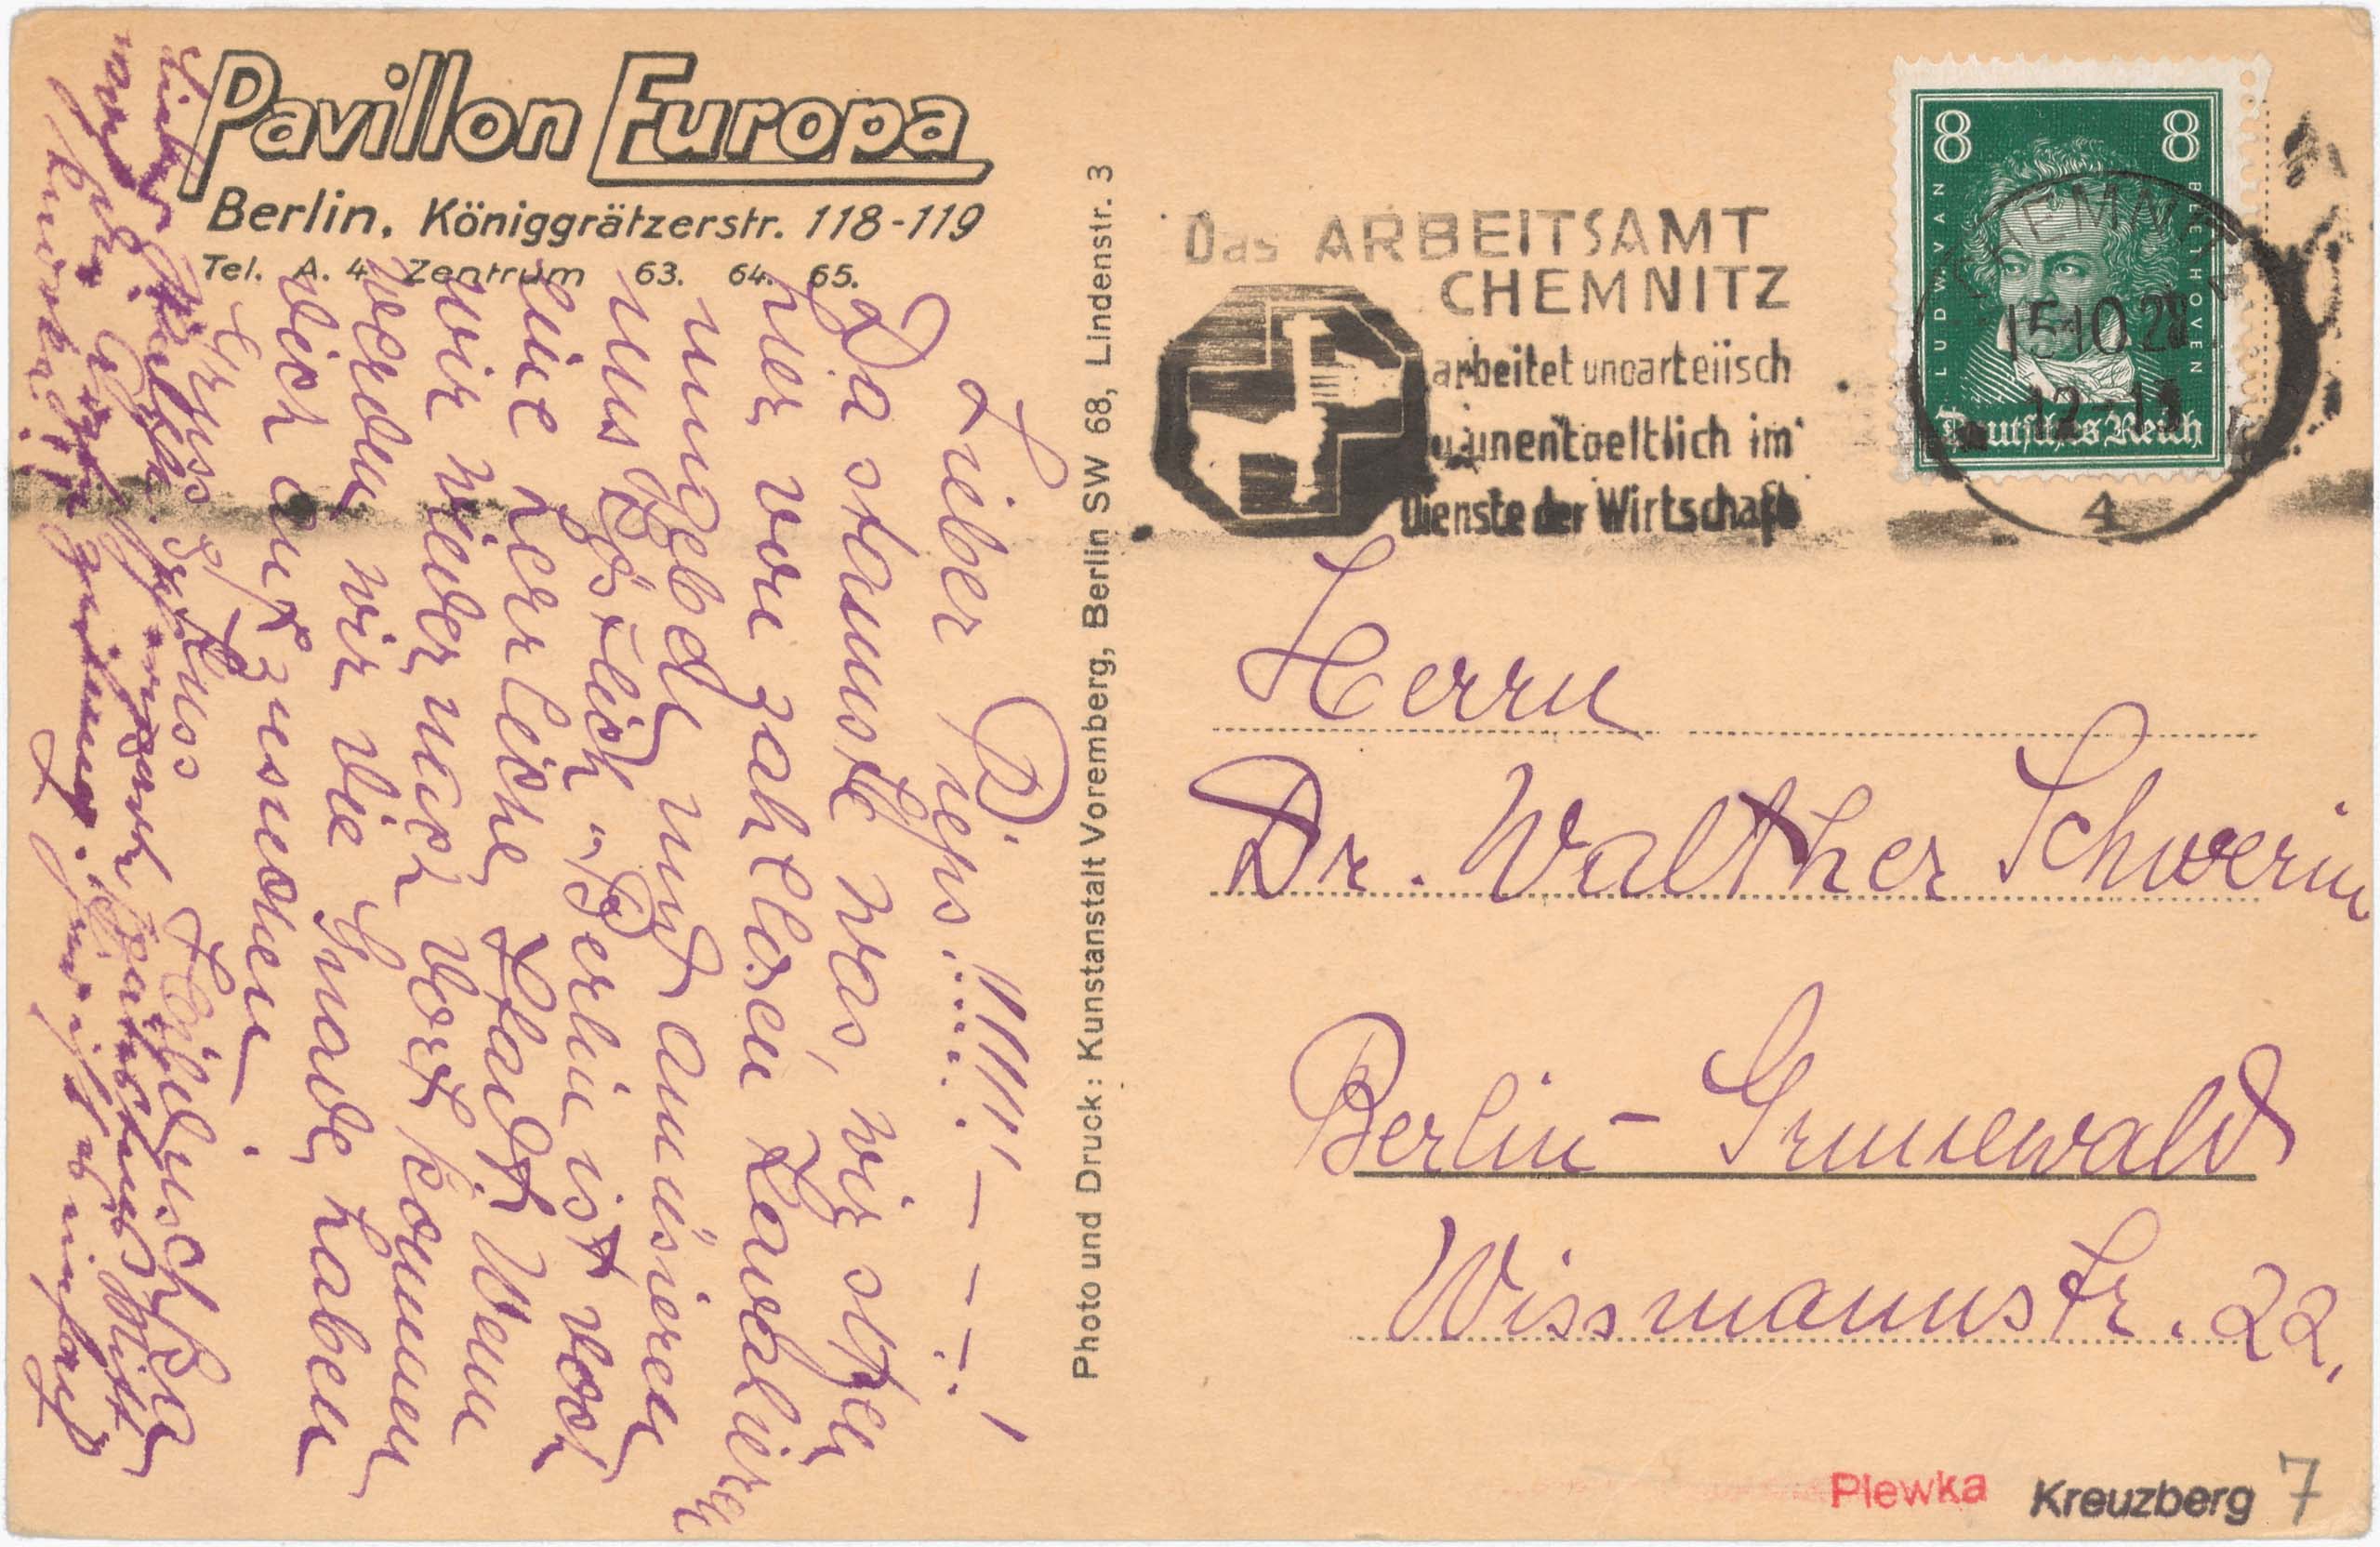 Pavillon Europa
Berlin, Königgrätzerstr. 118-119
Tel. A. 4 Zentrum 63. 64. 65.
Lieber Pieps
Da staunste was, wir sitzen
hier von zahllosen Kavalieren
umgeben und amüsieren
uns köstlich. „Berlin ist doch
eine herrliche Stadt. Wenn
wir wieder nach dort kommen
werden wir die Gnade haben
dich aufzusuchen.
Gruss u. Kuss
Photo und Druck: Kunstanstalt Voremberg, Berlin SW 68, Lindenstr. 3
Das ARBEITSAMT
CHEMNITZ
arbeitet unparteiisch
u. unentgeltlich im
Dienste der Wirtschaft
8 8
LUDW. VAN BEETHOVEN
Deutsches Reich
CHEMNITZ
15.10.28
12-13
4
Herrn
Dr. Walther Schwerin
Berlin-Grunewald
Wissmannstr. 22.
Plewka Kreuzberg 7